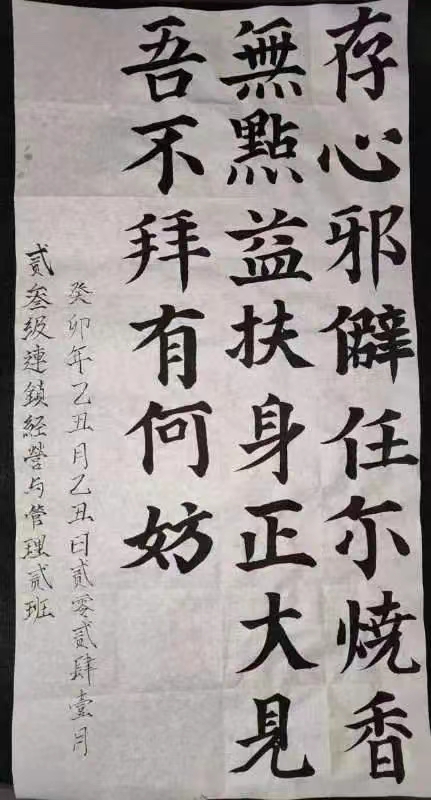 存心邪僻任尔燒香
無點益扶身正大見
吾不拜有何妨
癸卯年乙丑月乙丑日贰零贰肆壹月
贰叁级連鎖經營与管理贰班